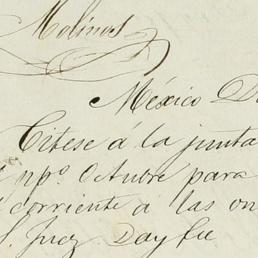 Molinos
México D
Citese á la junta
npº. Octubre para
corriente á las on
S. Juez. Doy fe